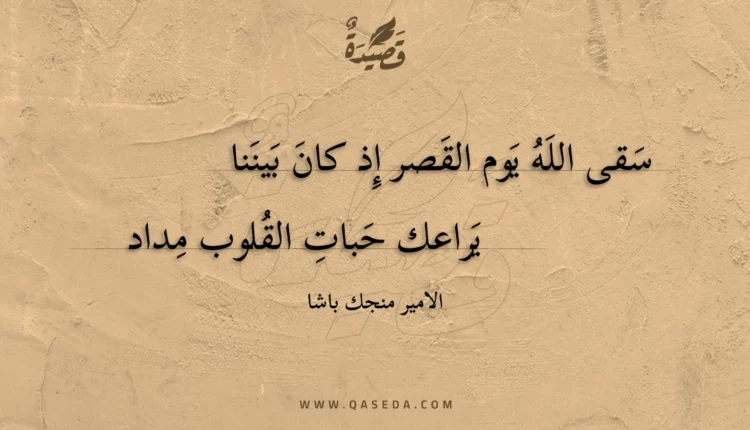 قَصِيدَةٌ
سَقى اللَهُ يَوم القَصر إِذ كانَ بَينَنا
يَراعك حَباتِ القُلوب مِداد
الامير منجك باشا
WWW.QASEDA.COM